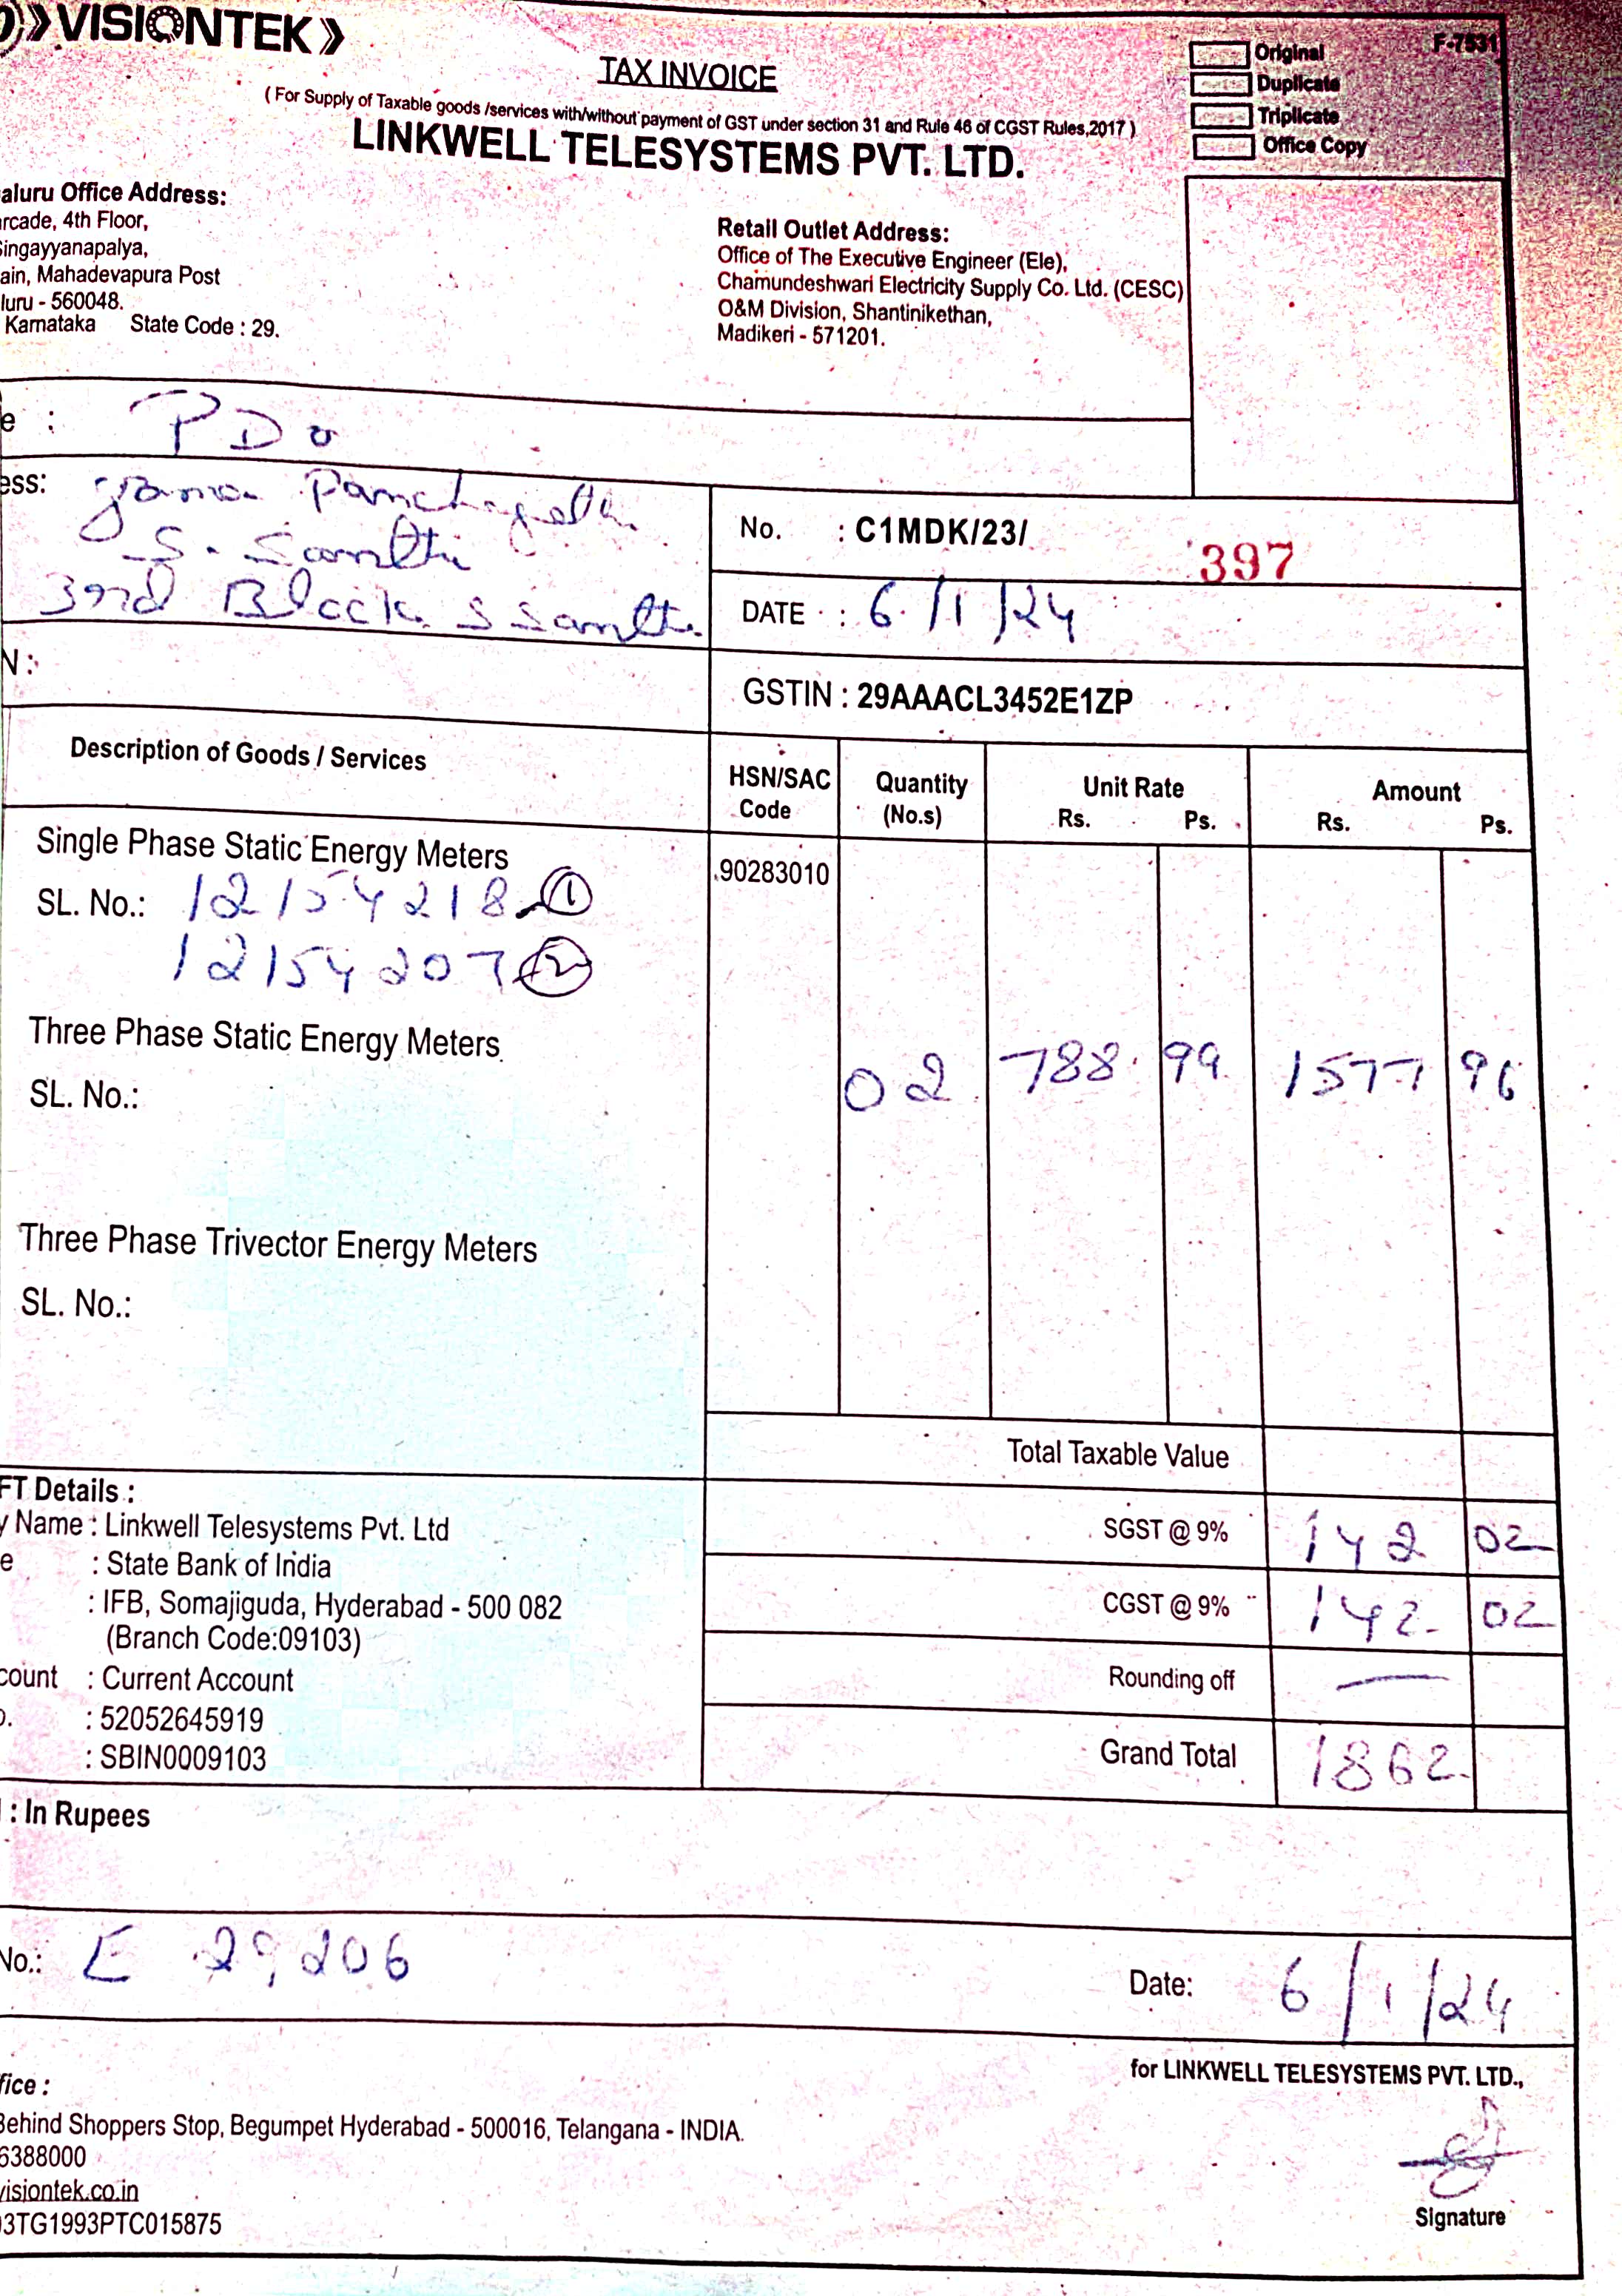 VISIONTEK
F-7531
TAX INVOICE
Original
Duplicate
Triplicate
Office Copy
( For Supply of Taxable goods /services with/without payment of GST under section 31 and Rule 46 of CGST Rules,2017 )
LINKWELL TELESYSTEMS PVT. LTD.
aluru Office Address:
rcade, 4th Floor,
Singayyanapalya,
ain, Mahadevapura Post
luru - 560048.
Karnataka State Code : 29.
Retail Outlet Address:
Office of The Executive Engineer (Ele),
Chamundeshwari Electricity Supply Co. Ltd. (CESC)
O&M Division, Shantinikethan,
Madikeri - 571201.
e : PDO
ess:
S. Santhi
3rd Block S Santhi
No. : C1MDK/23/ 397
DATE : 6/1/24
N :
GSTIN : 29AAACL3452E1ZP
Description of Goods / Services
HSN/SAC Code
Quantity (No.s)
Unit Rate Rs. Ps.
Amount Rs. Ps.
Single Phase Static Energy Meters 90283010
SL. No.: 12154218 1
12154207 2
Three Phase Static Energy Meters
SL. No.:
02 788. 99 1577 96
Three Phase Trivector Energy Meters
SL. No.:
Total Taxable Value
SGST @ 9% 142 02
CGST @ 9% 142 02
Rounding off —
Grand Total 1862
FT Details :
y Name : Linkwell Telesystems Pvt. Ltd
e : State Bank of India
: IFB, Somajiguda, Hyderabad - 500 082
(Branch Code:09103)
count : Current Account
o. : 52052645919
: SBIN0009103
: In Rupees
No.: E 29206
Date: 6/1/24
for LINKWELL TELESYSTEMS PVT. LTD.,
fice :
Behind Shoppers Stop, Begumpet Hyderabad - 500016, Telangana - INDIA.
6388000
visiontek.co.in
03TG1993PTC015875
Signature